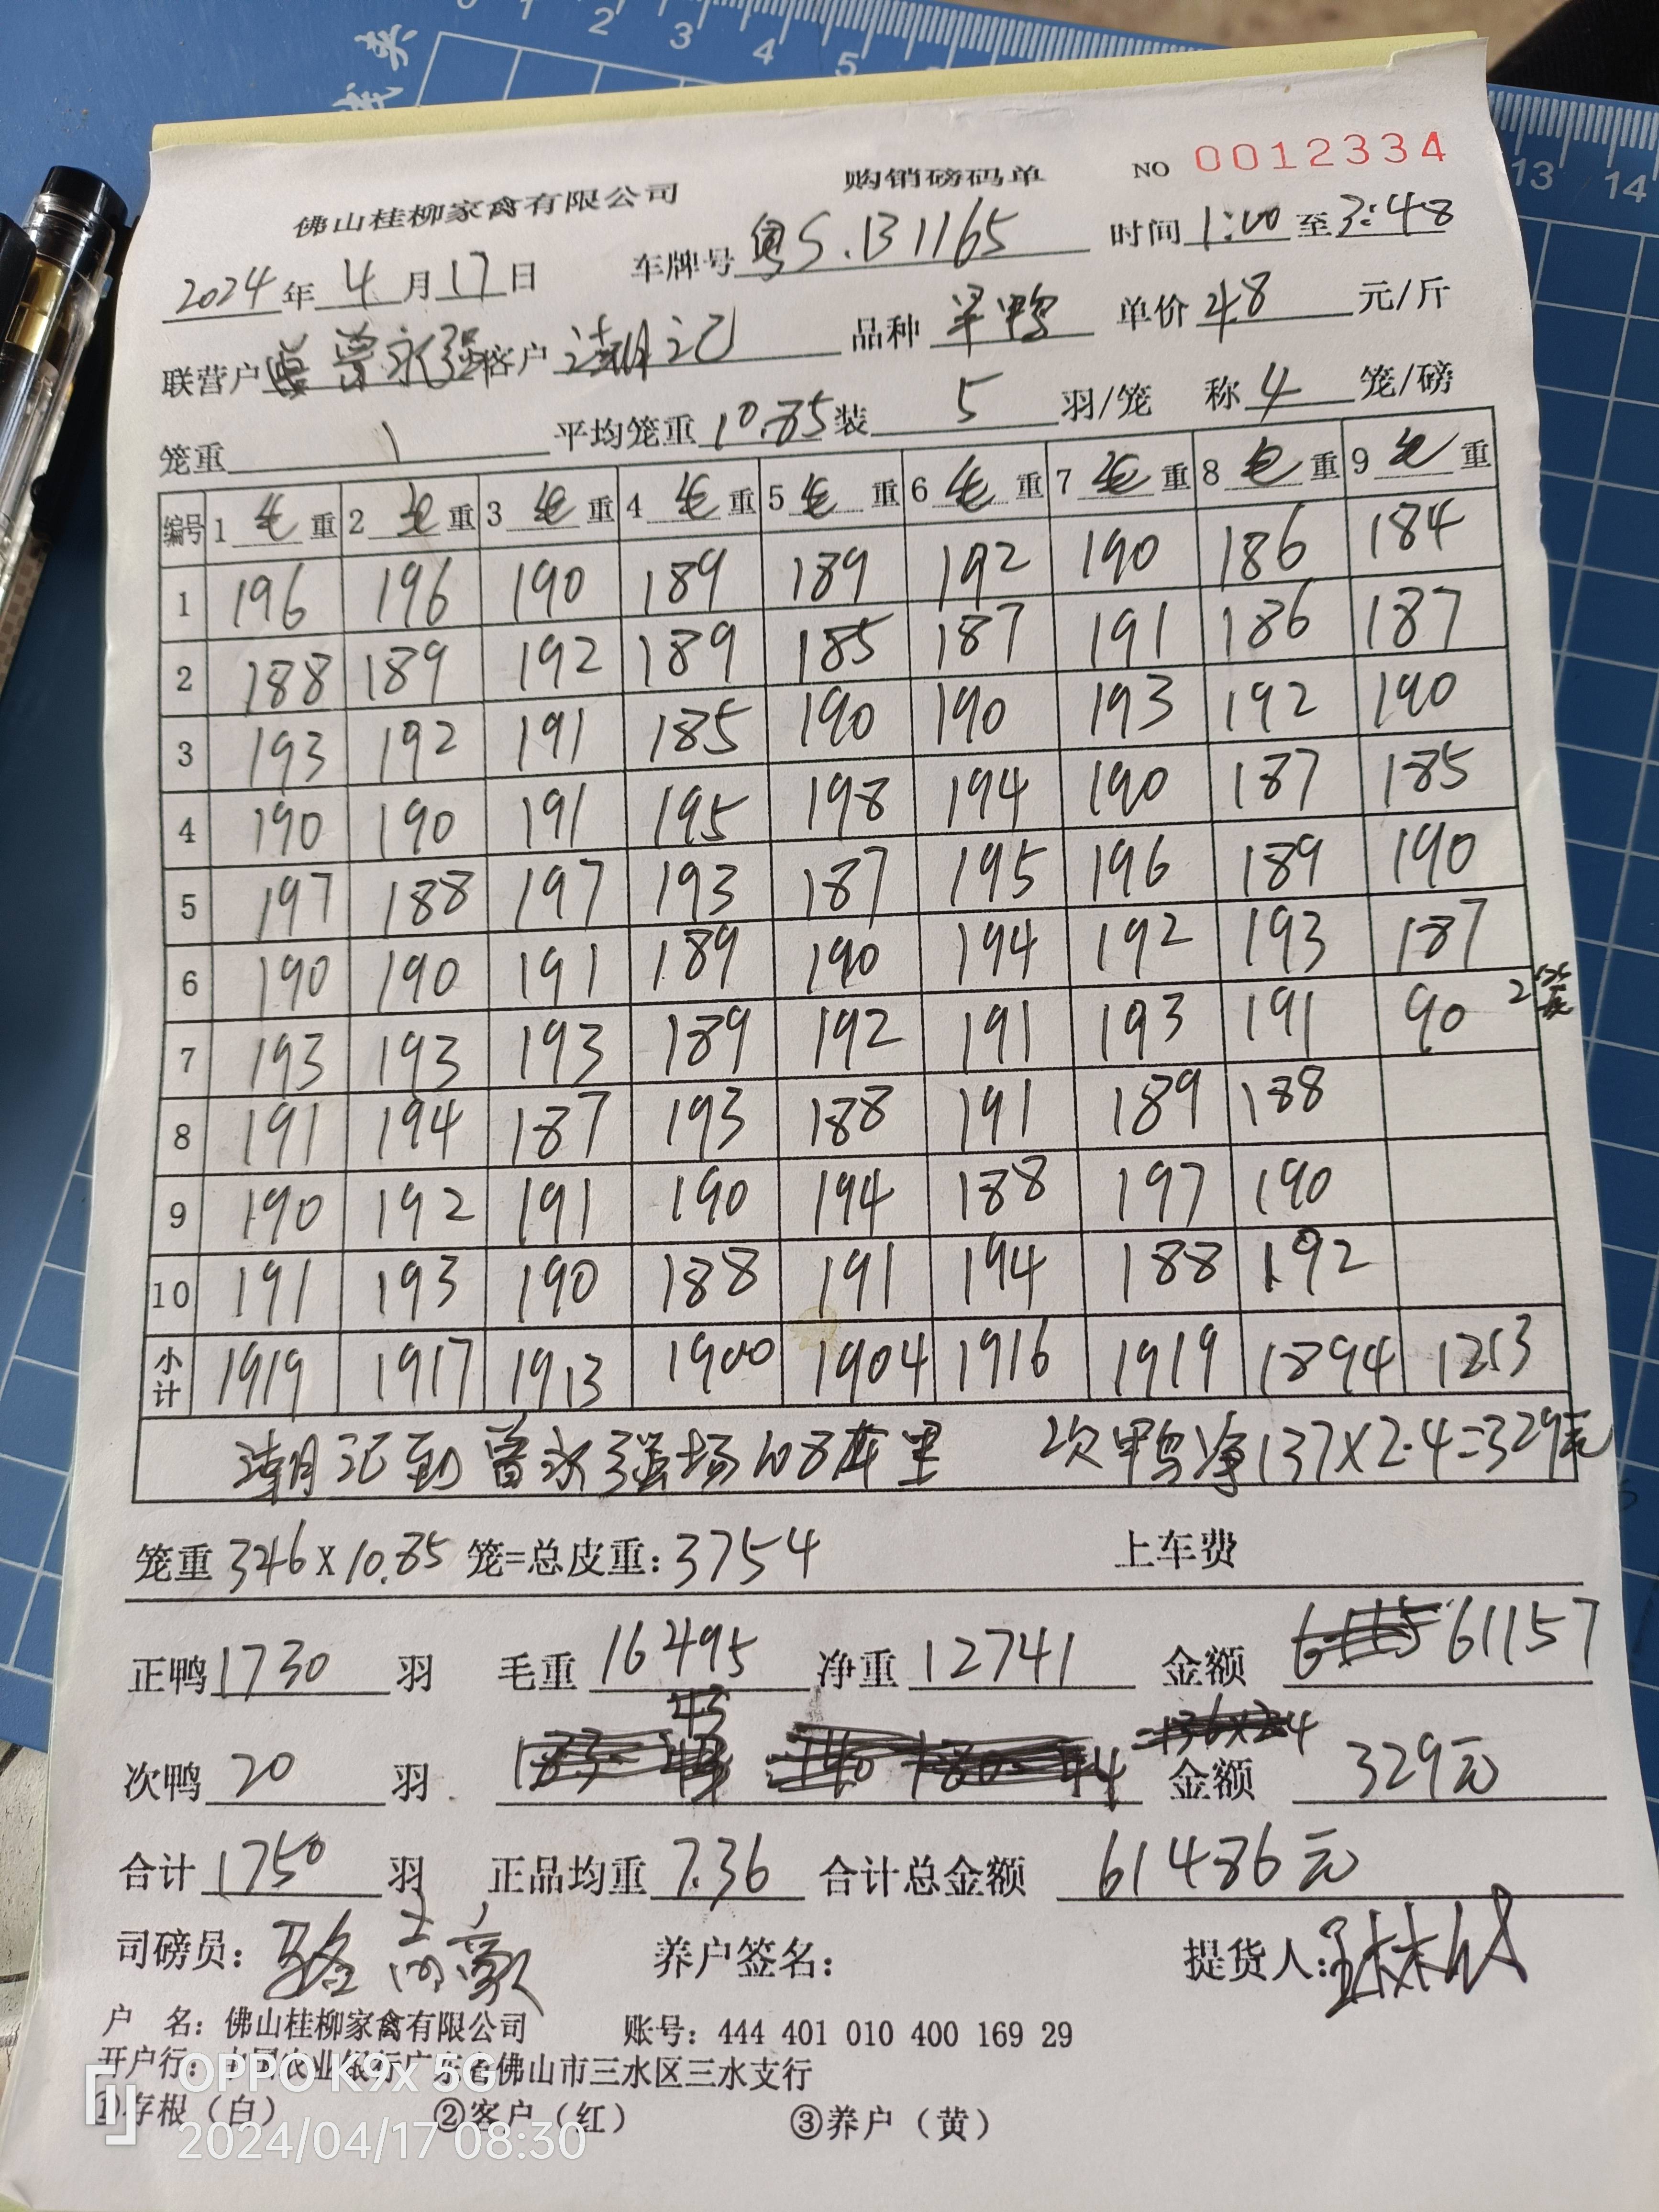 0 1 2 3 4 5
13 14
佛山桂柳家禽有限公司 购销磅码单 NO 0012334
2024年4月17日 车牌号粤S.B1165 时间1:00至3:48
联营户曾永强客户潮记 品种 鸭 单价4.8元/斤
笼重1 平均笼重10.85装5羽/笼 称4笼/磅
编号 1毛重 2毛重 3毛重 4毛重 5毛重 6毛重 7毛重 8毛重 9毛重
1 196 196 190 189 189 192 190 186 184
2 188 189 192 189 185 187 191 186 187
3 193 192 191 185 190 190 193 192 190
4 190 190 191 195 198 194 190 187 185
5 197 188 197 193 187 195 196 189 190
6 190 190 191 189 190 194 192 193 187
7 193 193 193 189 192 191 193 191 90 2笼
8 191 194 187 193 188 191 189 188
9 190 192 191 190 194 188 197 190
10 191 193 190 188 191 194 188 192
小计 1919 1917 1913 1900 1904 1916 1919 1894 1213
潮记到曾永强场108车里 次鸭净137X2.4=329元
笼重346X10.85笼=总皮重:3754 上车费
正鸭1730羽 毛重16495 净重12741 金额61157
次鸭20羽 金额329元
合计1750羽 正品均重7.36 合计总金额61486元
司磅员:骆志豪 养户签名: 提货人:
户 名:佛山桂柳家禽有限公司 账号:444 401 010 400 169 29
开户行:中国农业银行广东省佛山市三水区三水支行
①存根(白) ②客户(红) ③养户(黄)
OPPO K9x 5G
2024/04/17 08:30